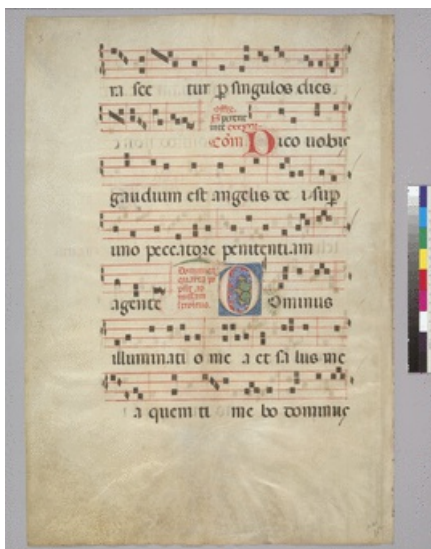 ra scetur p singulos dies
Com Dico uobis
gaudium est angelis de i sup
uno peccatore penitentiam
agente Dominus
illuminati o me a et sa lus me
a quem ti me bo dominus